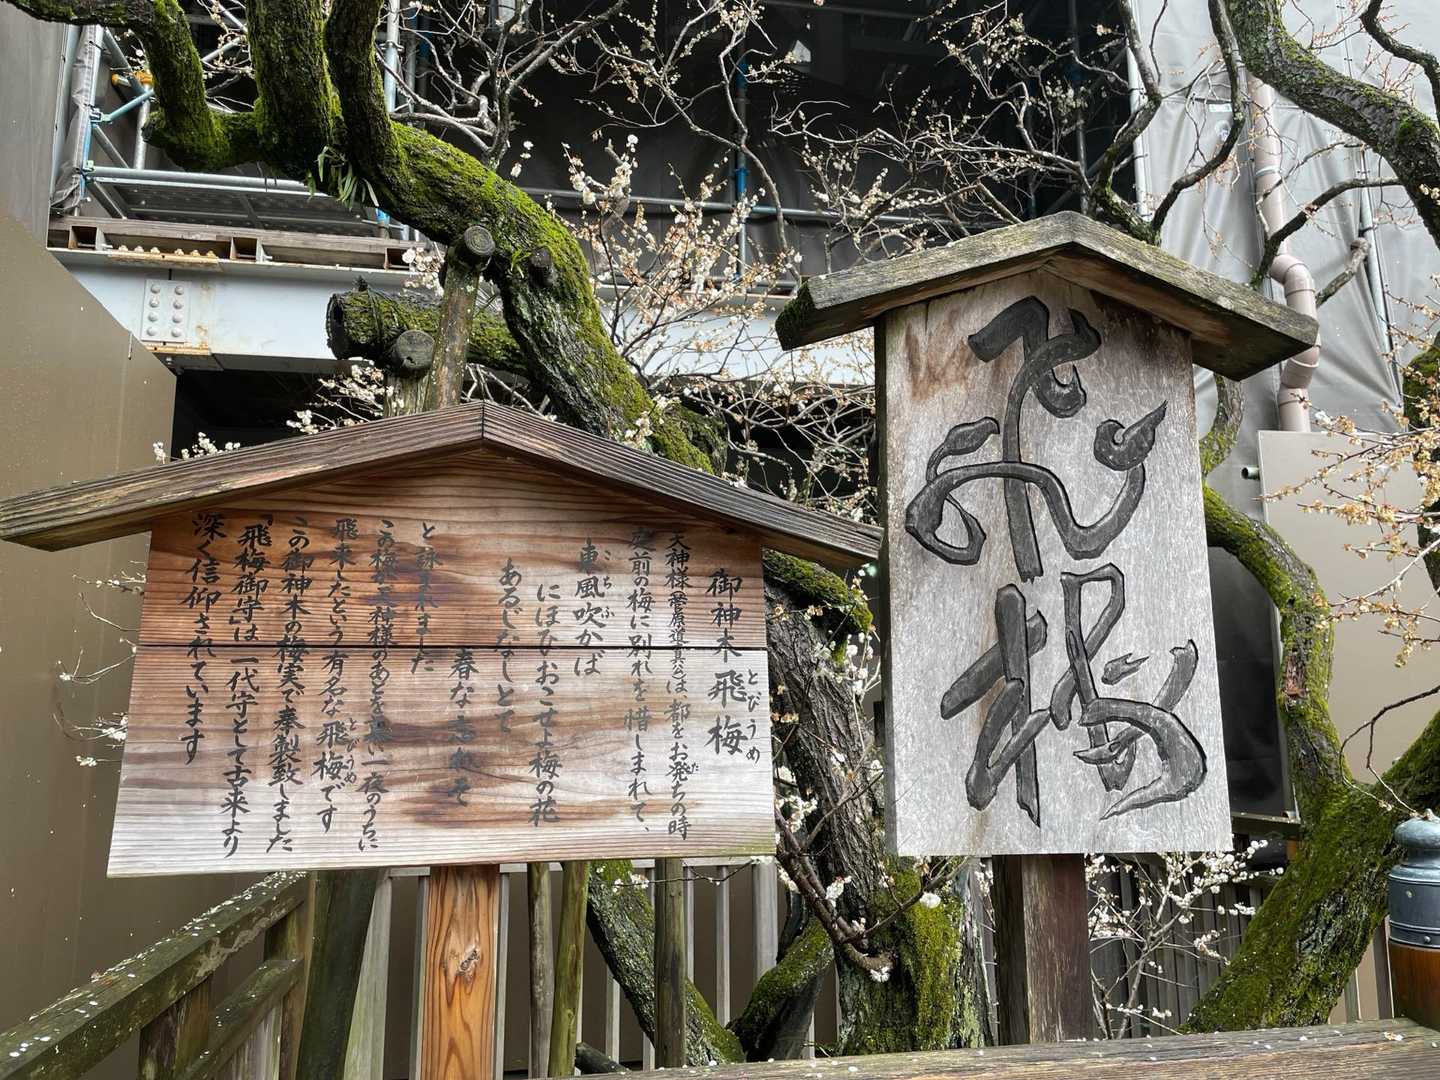 御神木 飛梅
とびうめ
天神様(菅原道真公)は、都をお発ちの時
庭前の梅に別れを惜しまれて、
東風吹かば
こちふ
にほひおこせよ梅の花
あるじなしとて
春な忘れそ
と詠まれました
この梅が天神様のあとを慕い一夜のうちに
飛来したという有名な飛梅です
とびうめ
この御神木の梅実で奉製致しました
「飛梅御守」は一代守として古来より
深く信仰されています
飛梅